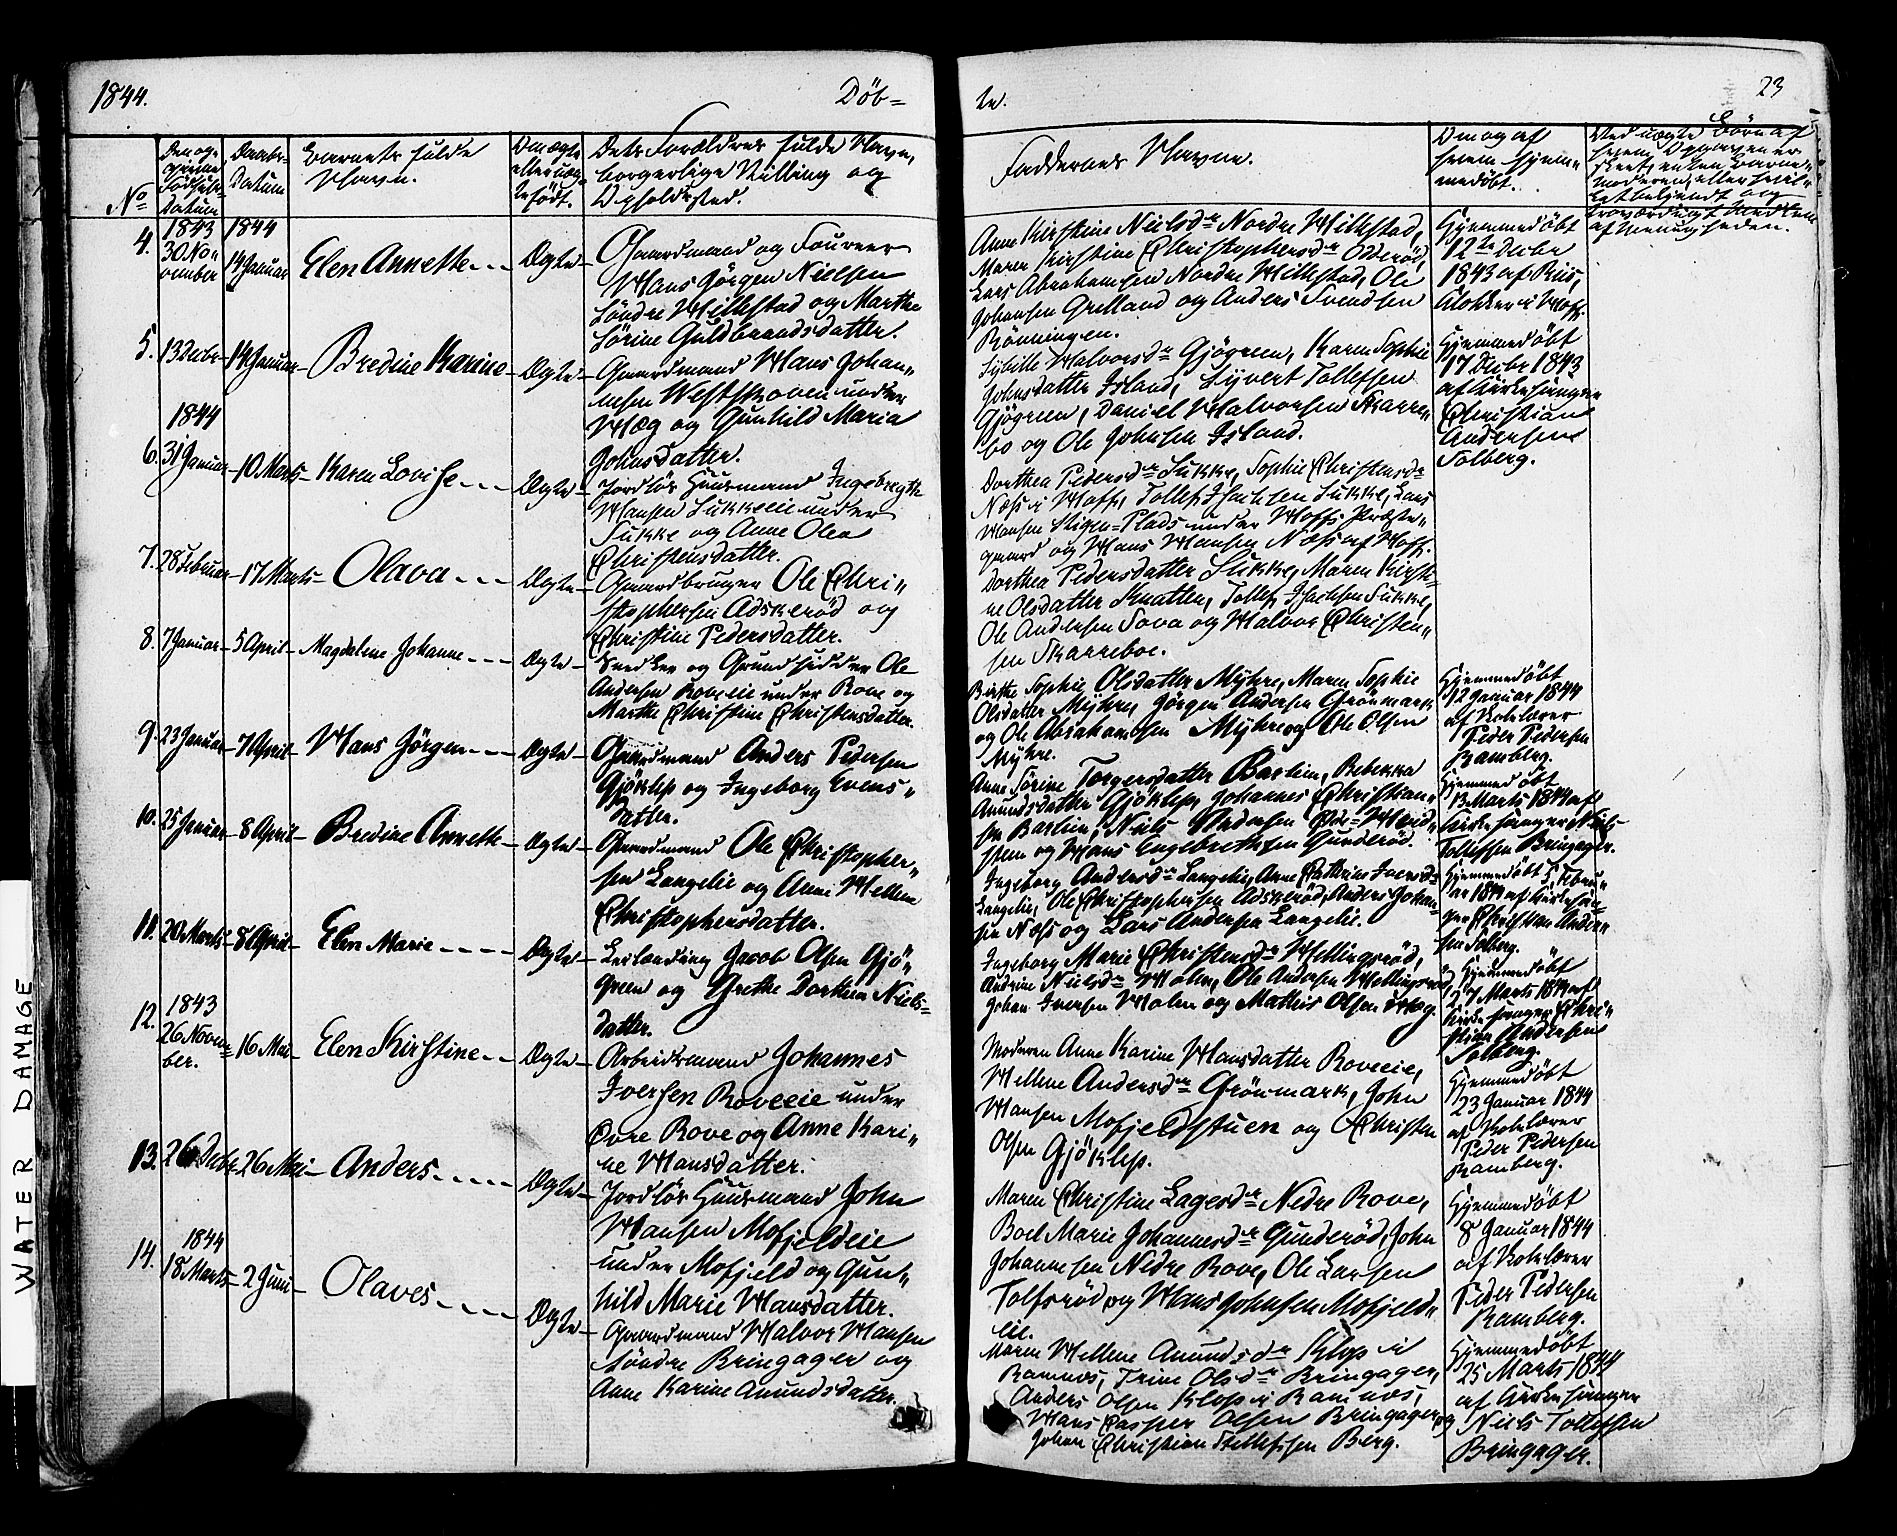 1844.
Döb=
te.
23
No
Den og-
Födsels-
Datum
Daabs-
Datum
Barnets fulde
Navn.
Om ægte
eller uæg-
te födt.
Dets Forældres fulde Navn,
borgerlige Stilling og
Opholdssted.
Faddernes Navne.
Om og af
hvem hjem-
medöbt.
Ved uægte Börn af
hvem Opgaven er
skeet, enten Barne-
moderen, eller
let bekjendt og
troværdigt Medlem
af Menigheden.
4.
1843
30 No-
vember
1844
14 Januar
Elen Annette
Ægte
Gaardmand og Foureer
Hans Jörgen Nielsen
Söndre Hillestad og Marthe
Sörine Guldbrandsdatter.
Anne Kirstine Nielsdr Nordre Hillestad,
Maren Kirstine Christophersdr Odderöd,
Lars Abrahamsen Nordre Hillestad, Ole
Johansen Grelland og Anders Svendsen
Rönningen.
Hjemmedöbt
12te Decbr
1843 af Riis,
Klokker i Hoff.
5.
13 Decbr
14 Januar
Bredine Karine
Ægte
Gaardmand Hans Johan-
nesen Westskoven under
Hæg og Gunhild Maria
Johnsdatter.
Sybille Halvorsdr Gjögreen, Karen Sophie
Johnsdatter Island, Syvert Tollefsen
Gjögreen, Daniel Halvorsen Skarre-
bo og Ole Johnsen Island.
Hjemmedöbt
17 Decbr 1843
af Kirkesanger
Christian
Andersen
Solberg.
6.
1844
31 Januar
10 Marts
Karen Lovise
Ægte
Jordlös Huusmand Ingebregt
Hansen Sukkeeie under
Sukke og Anne Olea
Christensdatter.
Dorthea Pedersdr Sukke, Sophie Christensdr
Næss i Hoff, Tollef Isachsen Sukke, Lars
Hansen Stigen=Plads under Hoffs Præste-
gaard og Hans Hansen Næss af Hoff.
7.
28 Februar
17 Marts
Olava
Ægte
Gaardbruger Ole Chri-
stophersen Adskeröd og
Christine Pedersdatter.
Dorthea Pedersdatter Sukke, Maren Kirsti-
ne Olsdatter Knatten, Tollef Isachsen Sukke,
Ole Andersen Sova og Halvor Christen-
sen Skarreboe.
8.
7 Januar
5 April
Magdalene Johanne
Ægte
Snedker og Grundsidder Ole
Andersen Roveeie under Rove og
Marthe Christine Christensdatter.
Birthe Sophie Olsdatter Myhre, Maren Sophie
Olsdatter Myhre, Jörgen Andersen Grönmark
og Ole Abrahamsen Myhre og Ole Olsen
Myhre.
Hjemmedöbt
12 Januar 1844
af Skolelærer
Peder Pedersen
Ramberg.
9.
23 Januar
7 April
Hans Jörgen
Ægte
Gaardmand Anders Pedersen
Gjöklep og Ingeborg Evens-
datter.
Anne Sörine Torgersdatter Barlien, Rebekka
Anundsdatter Gjöklep, Johannes Christian-
sen Barlien, Niels Andersen
og Hans Engebrethsen Gunderöd.
Hjemmedöbt
13 Marts 1844 af
Kirkesanger Niels
Tollefsen Bringager.
10.
25 Januar
8 April
Bredine Annette
Ægte
Gaardmand Ole Christopher-
sen Langelie og Anne Hellene
Christophersdatter.
Ingeborg Andersdr Langelie, Anne Cathrine Iversdr
Langelie, Ole Christophersen Adskeröd, Anders Johan-
sen Næss og Lars Andersen Langelie.
Hjemmedöbt 5 Febru-
ar 1844 af Kirkesan-
ger Christian Ander-
sen Solberg.
11.
20 Marts
8 April
Elen Marie
Ægte
Leilænding Jacob Olsen Gjö-
green og Grethe Dorthea Niels-
datter.
Ingeborg Marie Christensdr Hellingsröd,
Andrine Nielsdr Holm, Ole Andersen Hellingsröd,
Johan Iversen Holm og Mathis Olsen Hæg.
Hjemmedöbt
27 Marts 1844 af
Kirkesanger Chri-
stian Andersen
Solberg.
12.
1843
26 Novem-
ber.
16 Mai
Elen Kirstine
Ægte
Arbeidsmand Johannes
Iversen Roveeie under
Övre Rove og Anne Kari-
ne Hansdatter.
Moderen Anne Karine Hansdatter Roveeie,
Hellene Andersdr Grönmark, John
Hansen Mofjeldstuen og Christen
Olsen Gjöklep.
Hjemmedöbt
23 Januar 1844
af Skolelærer
Peder Pedersen
Ramberg.
13.
26 Decbr
26 Mai
Anders
Ægte
Jordlös Huusmand John
Hansen Mofjeldeie
under Mofjeld og Gun-
hild Marie Hansdatter.
Maren Christine Lagesdr Nedre Rove,
Boel Marie Johannesdr Gunderöd, John
Johannesen Nedre Rove, Ole Larsen
Tolfsröd og Hans Johnsen Mofjeld-
eie.
Hjemmedöbt
8 Januar 1844
af Skolelærer
Peder Pedersen
Ramberg.
14.
1844
18 Marts
2 Juni
Olaves
Ægte
Gaardmand Halvor Hansen
Söndre Bringager og
Anne Karine Anundsdatter.
Maren Hellene Anundsdr Klop i
Ramnes, Trine Olsdr Bringager,
Anders Olsen Klop i Ramnes,
Hans Casper Olsen Bringager og
Johan Christian Tollefsen Berg.
Hjemmedöbt
25 Marts 1844
af Kirkesanger
Niels Tollefsen
Bringager.
WATER DAMAGE